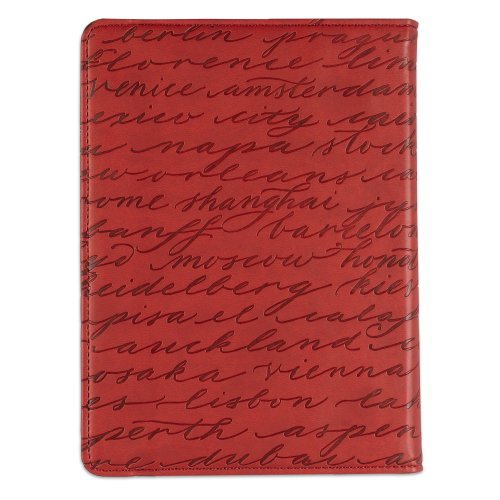 berlin prague
florence lim
venice amsterdam
exico city cai
u napa stock
w orleans ca
ome shanghai ju
banff barcelon
yd moscow hond
eidelberg kies
pisa el calaf
auckland
osaka vienna
es lisbon lak
perth aspen
dubai a